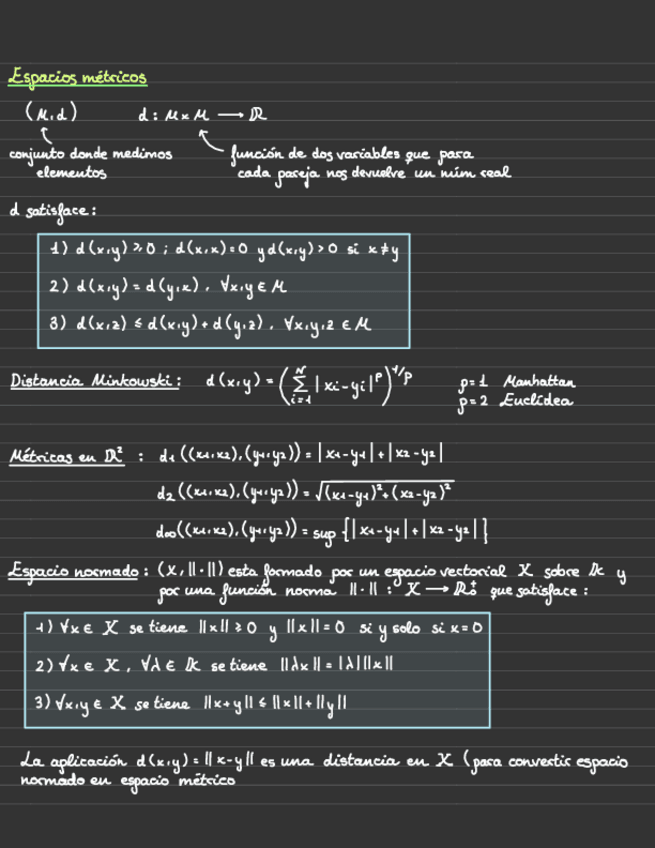 Espacios métricos
(M,d) d : M x M → ℝ
conjunto donde medimos función de dos variables que para
elementos cada pareja nos devuelve un núm real
d satisface :
1) d(x,y) ≥ 0 ; d(x,x)=0 y d(x,y) > 0 si x ≠ y
2) d(x,y) = d(y,x) , ∀x,y ∈ M
3) d(x,z) ≤ d(x,y) + d(y,z) , ∀x,y,z ∈ M
Distancia Minkowski : d(x,y) = (∑_{i=1}^{N} |xi - yi|^p)^{1/p} p=1 Manhattan
p=2 Euclídea
Métricas en ℝ² : d₁((x₁,x₂),(y₁,y₂)) = |x₁-y₁| + |x₂-y₂|
d₂((x₁,x₂),(y₁,y₂)) = √((x₁-y₁)²+(x₂-y₂)²)
d∞((x₁,x₂),(y₁,y₂)) = sup {|x₁-y₁| + |x₂-y₂|}
Espacio normado : (X, ||·||) esta formado por un espacio vectorial X sobre 𝕂 y
por una función norma ||·|| : X → ℝ₀⁺ que satisface :
1) ∀x ∈ X se tiene ||x|| ≥ 0 y ||x|| = 0 si y solo si x = 0
2) ∀x ∈ X , ∀λ ∈ 𝕂 se tiene ||λx|| = |λ| ||x||
3) ∀x,y ∈ X se tiene ||x+y|| ≤ ||x|| + ||y||
La aplicación d(x,y) = ||x-y|| es una distancia en X (para convertir espacio
normado en espacio métrico